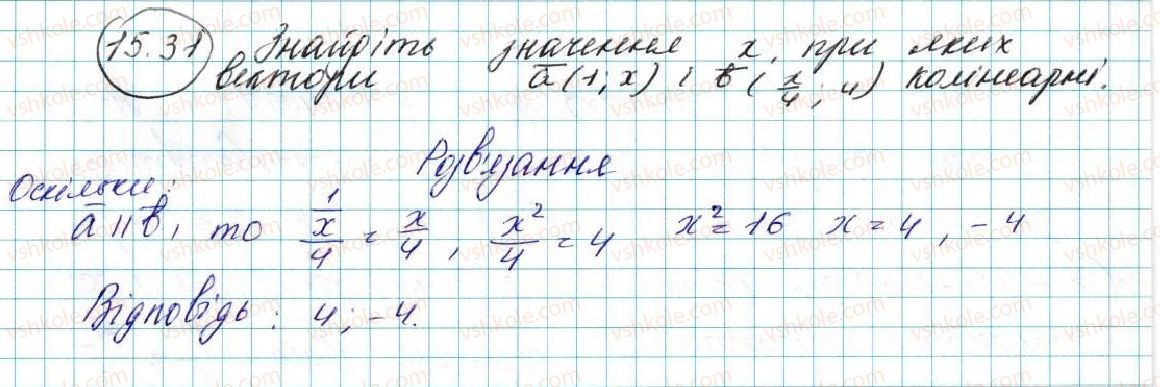 15.31 Знайдіть значення x, при яких
вектори a̅(1; x) і b̅(x/4; 4) колінеарні.
Розв'язання
Оскільки:
a̅ || b̅, то 1/(x/4) = x/4, x²/4 = 4 x² = 16 x = 4, -4
Відповідь: 4; -4.